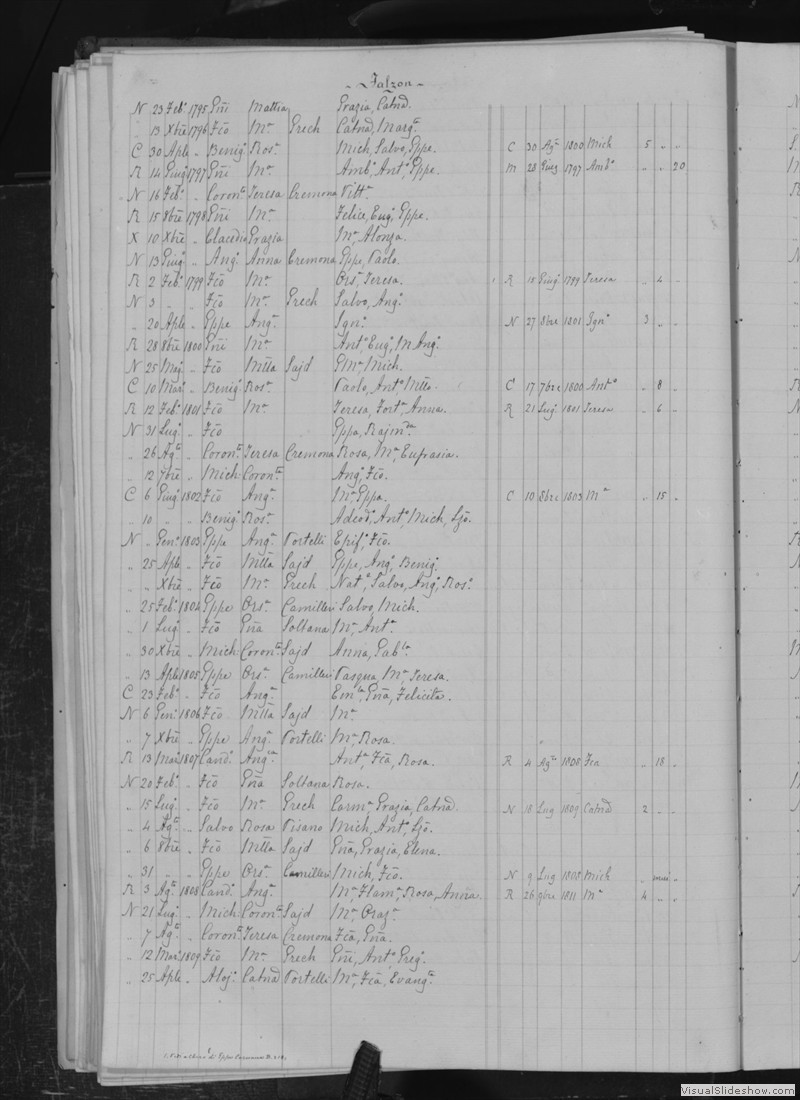 Falzon
N 23 Feb. 1795 Gñi Mattia Grazia, Catnd.
" 13 Xbre 1796 Fco Ma. Grech Catnd, Marga.
C 30 Aple " Benig. Rosa. Mich, Salvo, Gppe. C 30 Aga. 1800 Mich 5 " "
R 14 Giug. 1797 Gñi Ma. Ambo. Anto. Gppe. M 28 Giug 1797 Ambo. " " 20
N 16 Feb. " Coronto Teresa Cremona Vitta.
R 15 8bre 1798 Gñi Ma. Felice, Eug. Gppe.
X 10 Xbre " Grazia Ma, Alonza.
N 13 Giug. " Ang. Anna Cremona Gppe, Paolo.
R 2 Feb. 1799 Fco Ma. Orsa, Teresa. R 15 Giug. 1799 Teresa " 4 "
N 3 " " Fco Ma. Grech Salvo, Ang.
" 20 Aple " Gppe Anga. Igno. N 27 8bre 1801 Igno. 3 " "
R 28 8bre 1800 Gñi Ma. Anto, Eug, M. Ang.
N 25 Mag. " Fco Mtta Sajd Ma, Mich.
C 10 Mar. " Benig. Rosa. Paolo, Anto. Mtta. C 17 7bre 1800 Anto. " 8 "
R 12 Feb. 1801 Fco Ma. Teresa, Forta, Anna. R 21 Lug. 1801 Teresa " 6 "
N 31 Lug. " Fco Gppa, Rajmda.
" 26 Aga. " Coronto Teresa Cremona Rosa, Ma. Eufrasia.
" 12 7bre " Mich Coronta. Ang. Fco.
C 6 Giug. 1802 Fco Anga. Ma. Gppa. C 10 8bre 1803 Ma " 15 "
" 10 " " Benig. Rosa. Adeod. Anto. Mich, Ljo.
N " Gen. 1803 Gppe Anga. Portelli Epif. Fco.
" 25 Aple " Fco Mtta Sajd Gppe, Ang. Benig.
" " Xbre " Fco Ma. Grech Nata. Salvo, Ang. Rosa.
" 25 Feb. 1804 Gppe Orsa. Camilleri Salvo, Mich.
" 1 Lug. " Fco Gña Soltana Ma, Anta.
" 30 Xbre " Mich Coronta Sajd Anna, Gabla.
" 13 Aple 1805 Gppe Orsa. Camilleri Pasqua, Ma, Teresa.
C 23 Feb. " Fco Anga. Emla. Gña, Felicita.
N 6 Gen. 1806 Fco Mtta Sajd Ma.
" 7 Xbre " Gppe Anga. Portelli Ma, Rosa.
R 13 Mar. 1807 Cand. Anga. Anta, Fca, Rosa. R 4 Aga. 1808 Fca " 18 "
N 20 Feb. " Fco Gña Soltana Rosa.
" 15 Lug. " Fco Ma. Grech Carma. Grazia, Catnd. N 18 Lug 1809 Catnd 2 " "
" 4 Aga. " Salvo Rosa Pisano Mich, Anto. Ljo.
" 6 8bre " Fco Mtta Sajd Gña, Grazia, Elena.
" 31 " " Gppe Orsa. Camilleri Mich, Fco. N 9 Lug 1808 Mich
R 3 Aga. 1808 Cand. Anga. Ma. Flama. Rosa, Anna. R 26 9bre 1811 Ma 4 " "
N 21 Lug. " Mich Coronta Sajd Ma, Oraza.
" 7 Aga. " Coronto Teresa Cremona Fca, Gña.
" 12 Mar. 1809 Fco Ma. Grech Gñi, Anto. Greg.
" 25 Aple " Aloj. Catnd Portelli Ma, Fca, Evanga.
VisualSlideshow.com